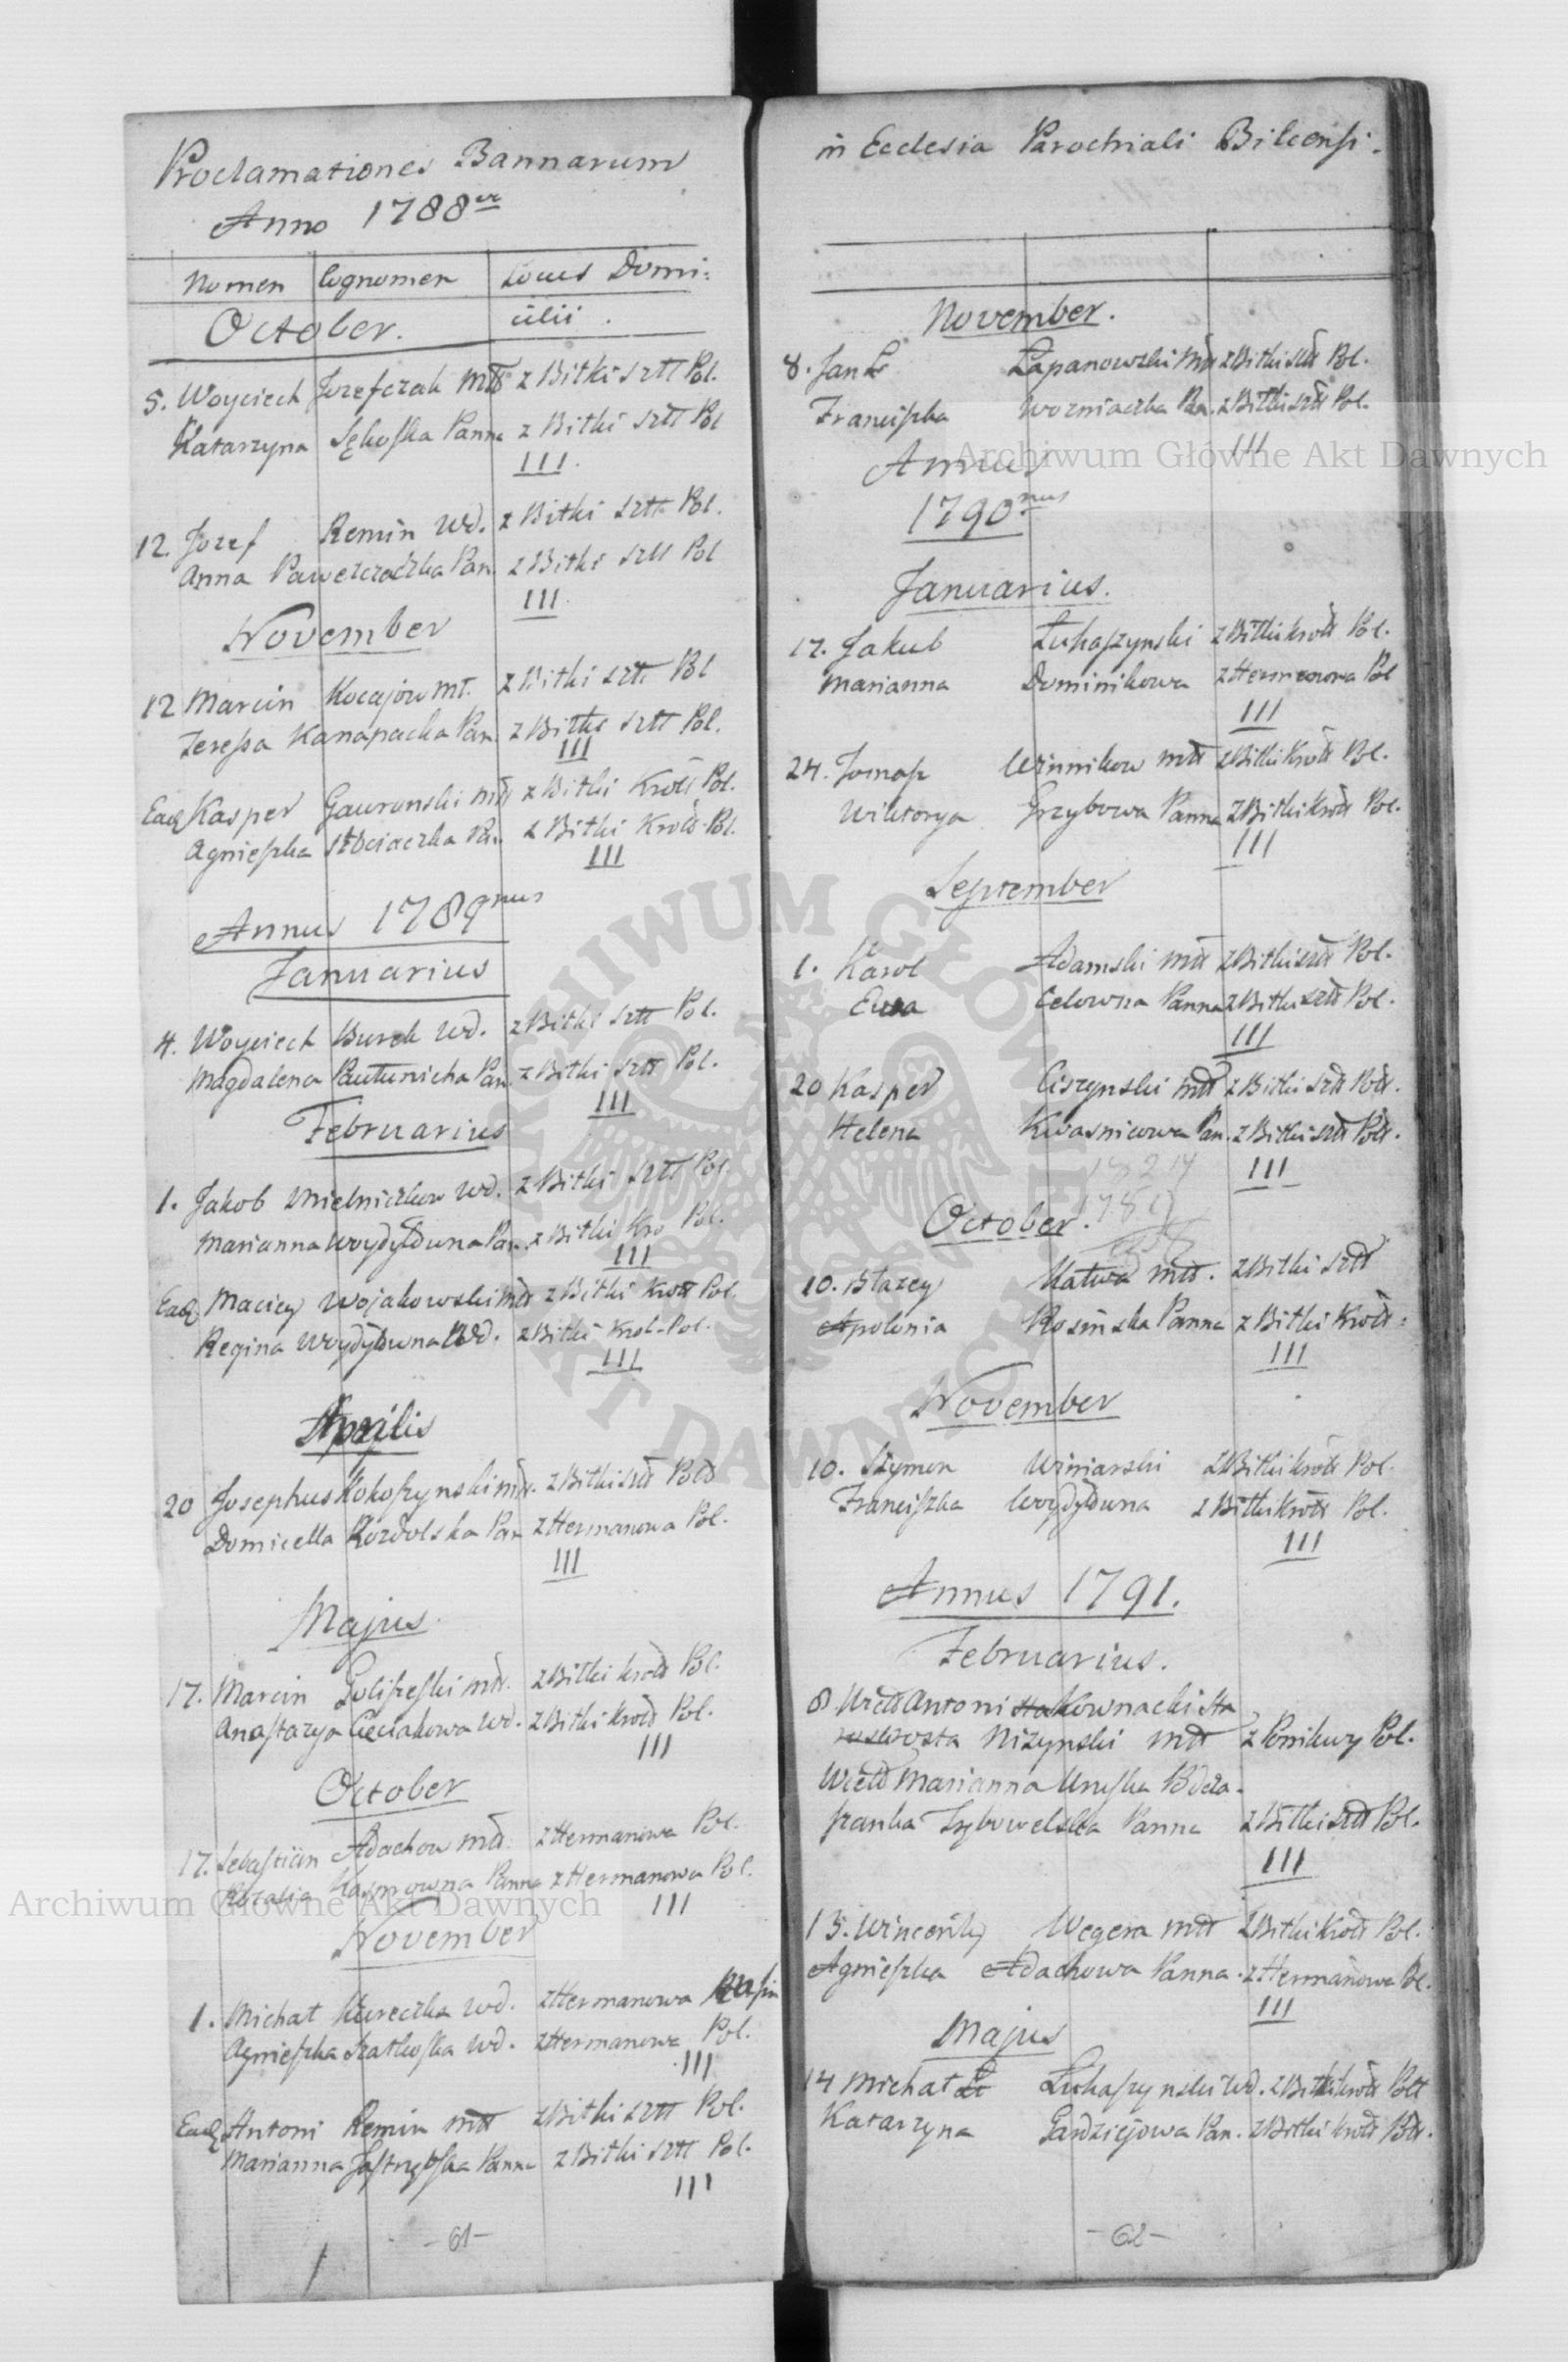 Proclamationes Bannarum
Anno 1788
Nomen Cognomen Locus Domi:
cilii.
October.
5. Woyciech Jozefczak Młł z Bitki szłł Pol.
Katarzyna Sękoska Panna z Bitki szłł Pol
III.
12. Jozef Remin Wd. z Bitki szłł Pol.
Anna Pawelczaczka Pan. z Bitki szłł Pol
III.
November
12 Marcin Kocajow mł. z Bitki szłł Pol
Teressa Kanapacka Pan. z Bitki szłł Pol.
III
Eadq Kasper Gawronski młł z Bitki Krolł Pol.
Agnieszka Pan. z Bitki Krolł Pol.
III
Annus 1789nus
Januarius
4. Woyciech Burek Wd. z Bitki szłł Pol.
Magdalena Pautunicha Pan. z Bitki szłł Pol.
III
Februarius
1. Jakob Mielniczkow Wd. z Bitki szłł Pol.
Marianna Woydyłowna Pan. z Bitki Kro Pol.
III
Eadq. Maciey Wojakowski młł z Bitki Krolł Pol.
Regina Woydyłowna Wd. z Bitki Krol. Pol.
III
Aprilis
20 Josephus Kokoszynski młł. z Bitki szłł Polł
Domicella Rozdolska Pan z Hermanowa Pol.
III
Majus.
17. Marcin Goliszeski młł. z Bitki krolł Pol.
Anastazya Cieciakowa Wd. z Bitki krolł Pol.
III
October
17. Sebastian Adachow młł. z Hermanowa Pol.
Rozalia Kasprowna Panna z Hermanowa Pol.
III
November
1. Michał Kureczka Wd. z Hermanowa
Agnieszka Szatkoska Wd. z Hermanowa Pol.
III
Eadq Antoni Remin młł z Bitki szłł Pol.
Marianna Jastrzębska Panna z Bitki szłł Pol.
III
-61-
in Ecclesia Parochiali Bilcensi.
November.
8. Jan Łapanowski młł z Bitki szłł Pol.
Franciszka Wozniaczka Pan. z Bitki szłł Pol.
III
Annus
1790nus
Januarius.
17. Jakub Łukaszynski z Bitki krolł Pol.
Marianna Dominikowa z Hermanowa Pol
III
24. Tomasz Winnikow młł z Bitki Krolł Pol.
Wiktorya Grzybowa Panna z Bitki krolł Pol.
III
September
1. Karol Adamski młł z Bitki szłł Pol.
Ewa Celowna Panna z Bitki szłł Pol.
III
20 Kasper Ciszynski młł z Bitki szłł Polł.
Helena Kwasnicowa Pan. z Bitki szłł Polł.
III
October. 1789
10. Błazey Matwa młł. z Bitki szłł
Apolonia Rosinska Panna z Bitki Krolł:
III
November
10. Szymon Winiarski z Bitki krolł Pol.
Franciszka Woydyłowna z Bitki krolł Pol.
III
Annus 1791.
Februarius.
8. Wielł Antoni Kownacki Sta
rosta Nizynski młł z Ponikwy Pol.
Wielł Marianna Uruska
szanka Trybowelska Panna z Bitki szłł Pol.
III
13. Wincenty Wegera młł z Bitki Krolł Pol.
Agnieszka Adachowa Panna. z Hermanowa Pol.
III
Majus
14 Michał Łukaszynski Wd. z Bitki krolł Poll
Katarzyna Gardziejowa Pan. z Bitki krolł Polł.
-62-
Archiwum Główne Akt Dawnych
Archiwum Główne Akt Dawnych
ARCHIWUM GŁÓWNE AKT DAWNYCH